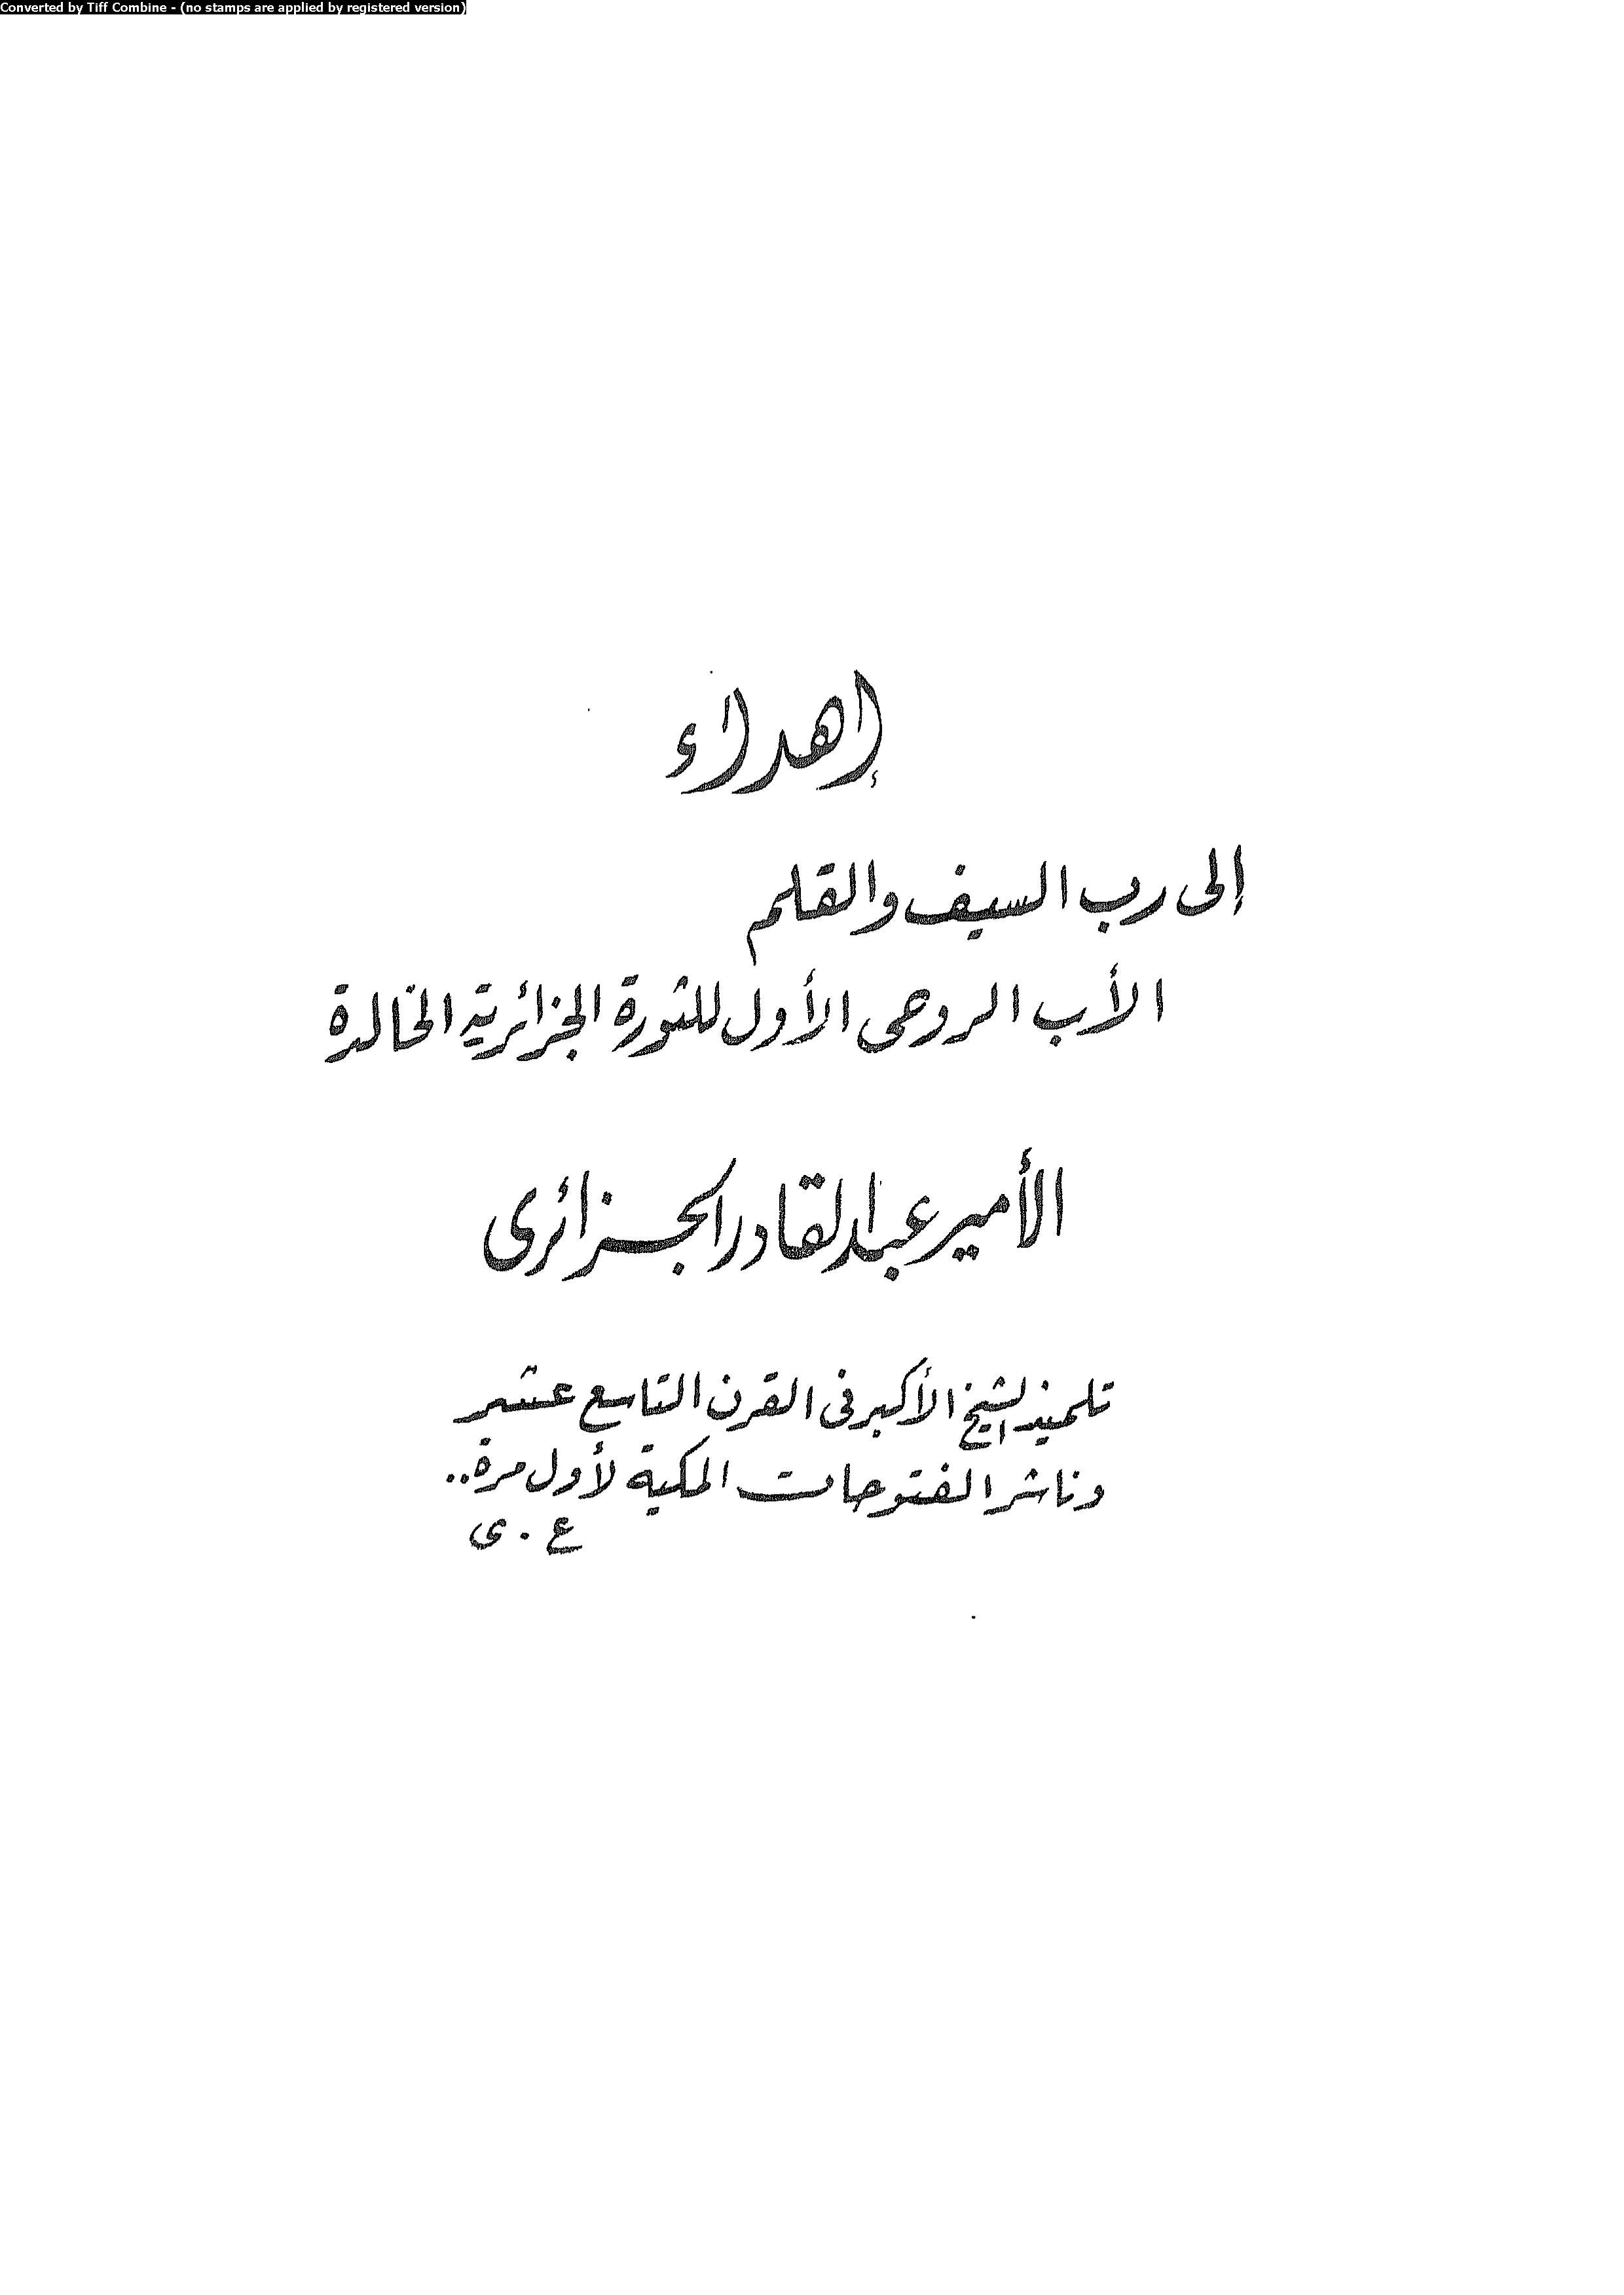 Converted by Tiff Combine - (no stamps are applied by registered version)
إهداء
إلى رب السيف والقلم
الأب الروحى الأول للثورة الجزائرية الخالدة
الأمير عبد القادر الجزائرى
تلميذ الشيخ الأكبر فى القرن التاسع عشر
وناشر الفتوحات المكية لأول مرة..
ع . ى